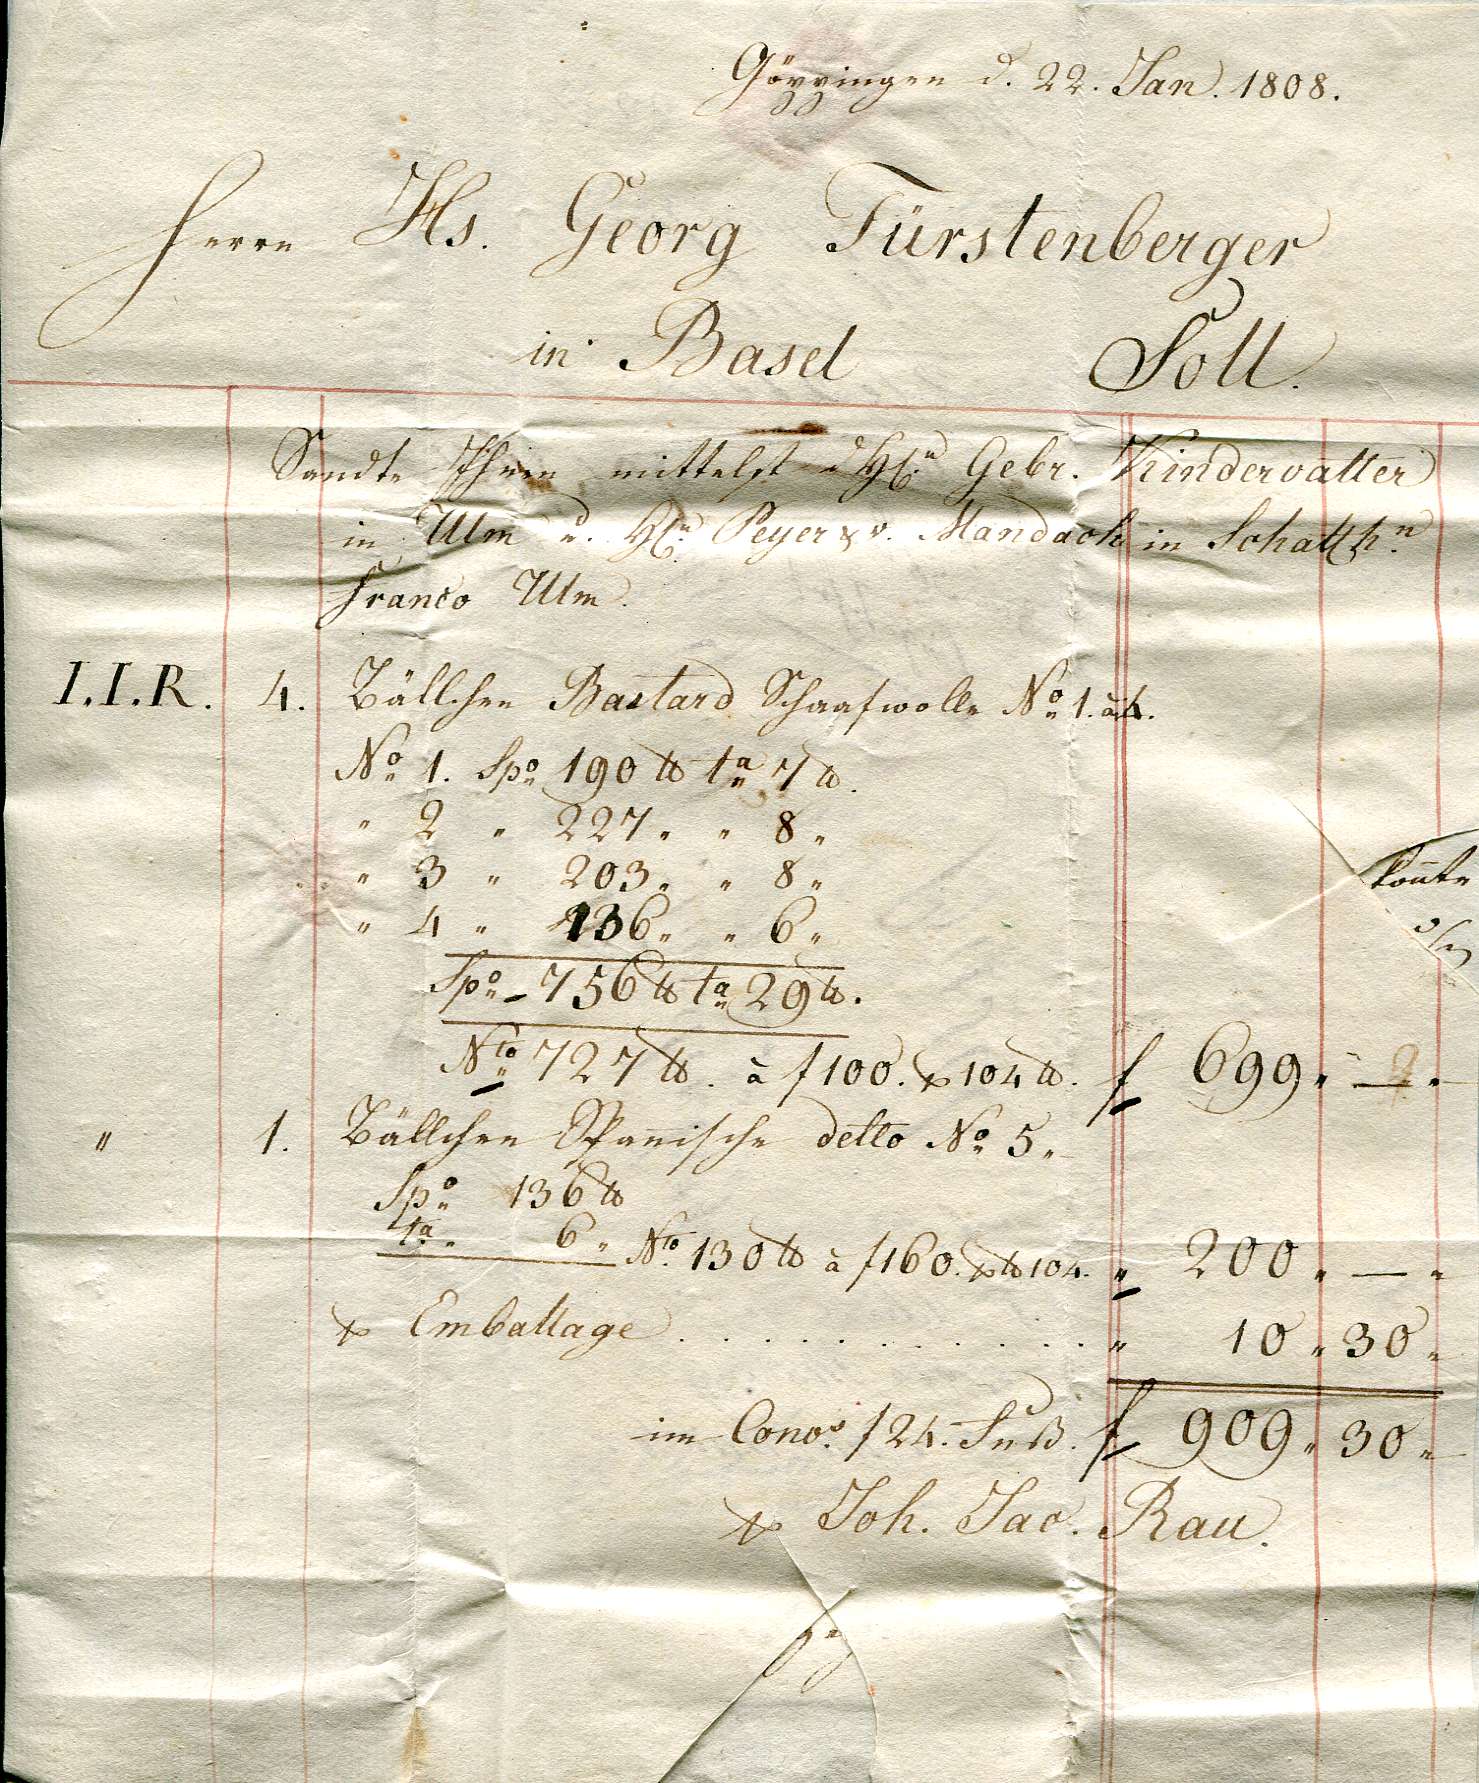 Göppingen d. 22. Jan. 1808.
Herrn Hs. Georg Fürstenberger
in Basel Soll.
Sandte Ihnen mittelst d HH.n Gebr. Kindervatter
in Ulm u. HH.n Peyer & v. Mandach in Schaffh.n
franco Ulm.
I.I.R. 4. Bällchen Bastard Schaafwolle No 1. à 4.
No 1. Spo 190 ℔ ta 7 ℔.
" 2 " 227 " " 8 "
" 3 " 203 " " 8 "
" 4 " 136 " " 6 "
Spo 756 ℔ ta 29 ℔.
Nto 727 ℔. à f 100. 104 ℔. f 699 " — "
" 1. Bällchen Spanische detto No 5 "
Spo 136 ℔
ta " 6 " Nto 130 ℔ à f 160. ℔ 104. " 200 " — "
Emballage . . . . . . . . . . . . " 10 " 30 "
im Convo. f 24. Fuß. f 909 " 30 "
Joh. Jac. Rau.